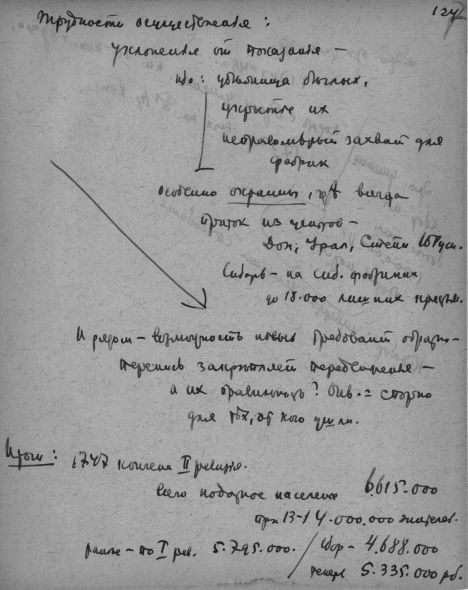 127
Трудности осуществления:
уклонения от показания —
ибо: убежища беглых,
укрытие их
неправомерный захват для
фабрик
особенно окраины, где всегда
приток из центров —
Дон, Урал, Степи Ю. Руси.
Сибирь — на сиб. фабриках
до 18.000 лишних
И рядом — возможность новых требований обратно —
перепись закрепляет передвижения —
а их правильность? спорно
для тех, от кого ушли.
Итоги: 1747 кончена II ревизия.
Всего податное население 6.615.000
при 13-14.000.000 жителей.
ранее — по I рев. 5.795.000. / сбор — 4.688.000
теперь 5.335.000 рб.